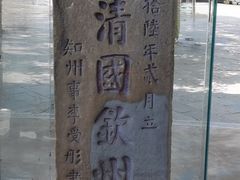 拾陸年貳月立
清國欽州
知州事李受彤書